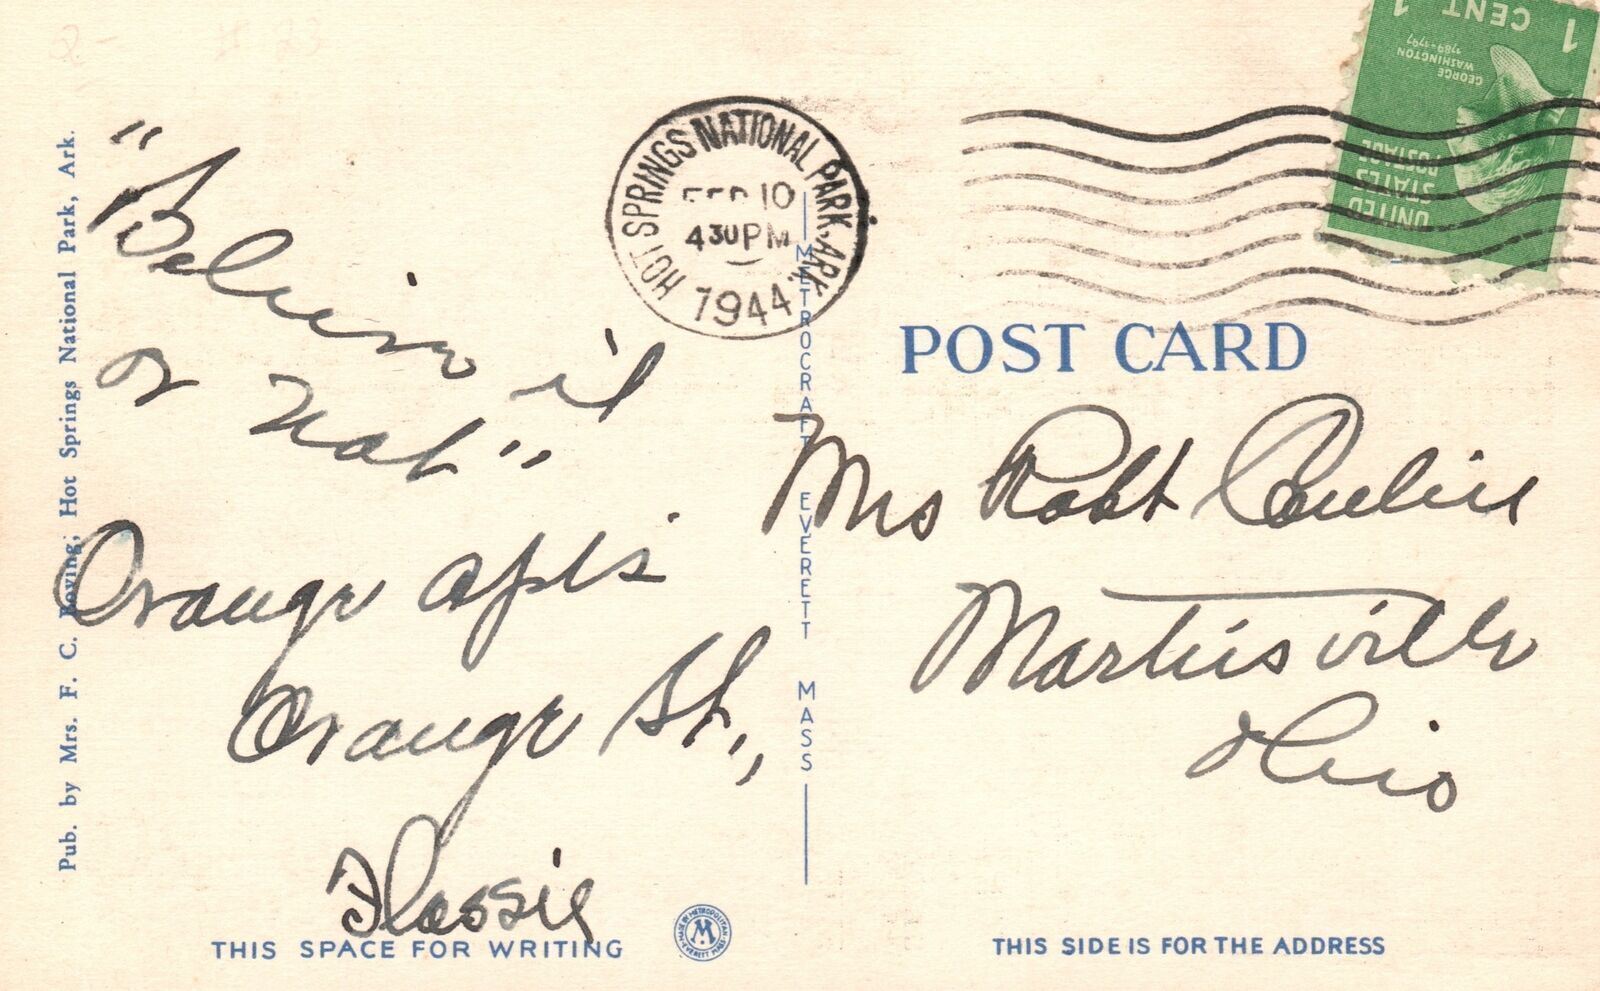 Pub. by Mrs. F. C. Boving; Hot Springs National Park, Ark.
"Believe it
or Not"
Orange apts
Orange St.,
Flossie
THIS SPACE FOR WRITING
HOT SPRINGS NATIONAL PARK, ARK.
FEB 10
430 PM
1944
METROCRAFT EVERETT MASS
MADE BY METROPOLITAN
M
EVERETT MASS
1 CENT 1
GEORGE WASHINGTON
1789-1797
UNITED STATES POSTAGE
POST CARD
Mrs Robt
Martinsville
Ohio
THIS SIDE IS FOR THE ADDRESS